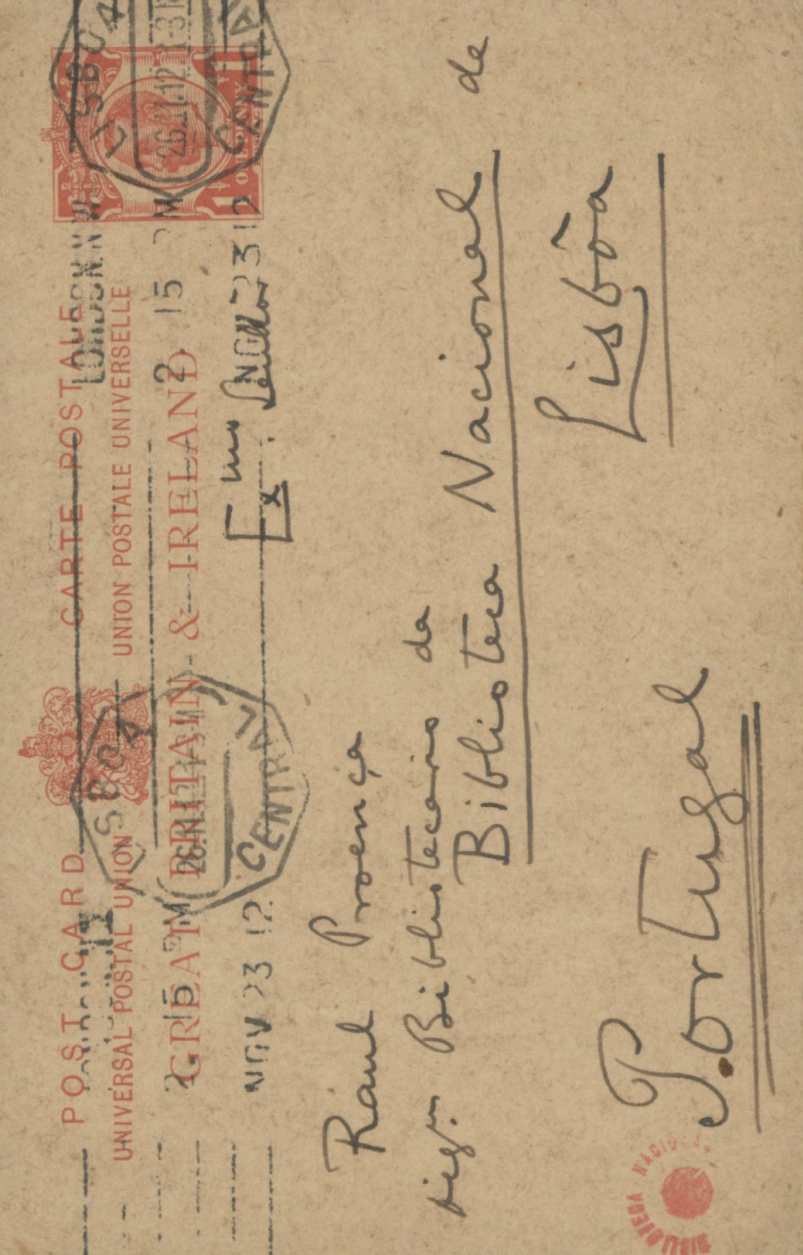 POST CARD CARTE POSTALE
UNIVERSAL POSTAL UNION UNION POSTALE UNIVERSELLE
GREAT BRITAIN & IRELAND
LONDON. N.W
2. 15 PM
NOV 23 12
2 15 PM
NOV 23 12
LISBOA
26.11.12
CENTRAL
LISBOA
CENTRAL
Exmo Senhor
Raul Proença
Bibliotecario da
Biblioteca Nacional de
Lisbôa
Portugal
BIBLIOTECA NACIONAL